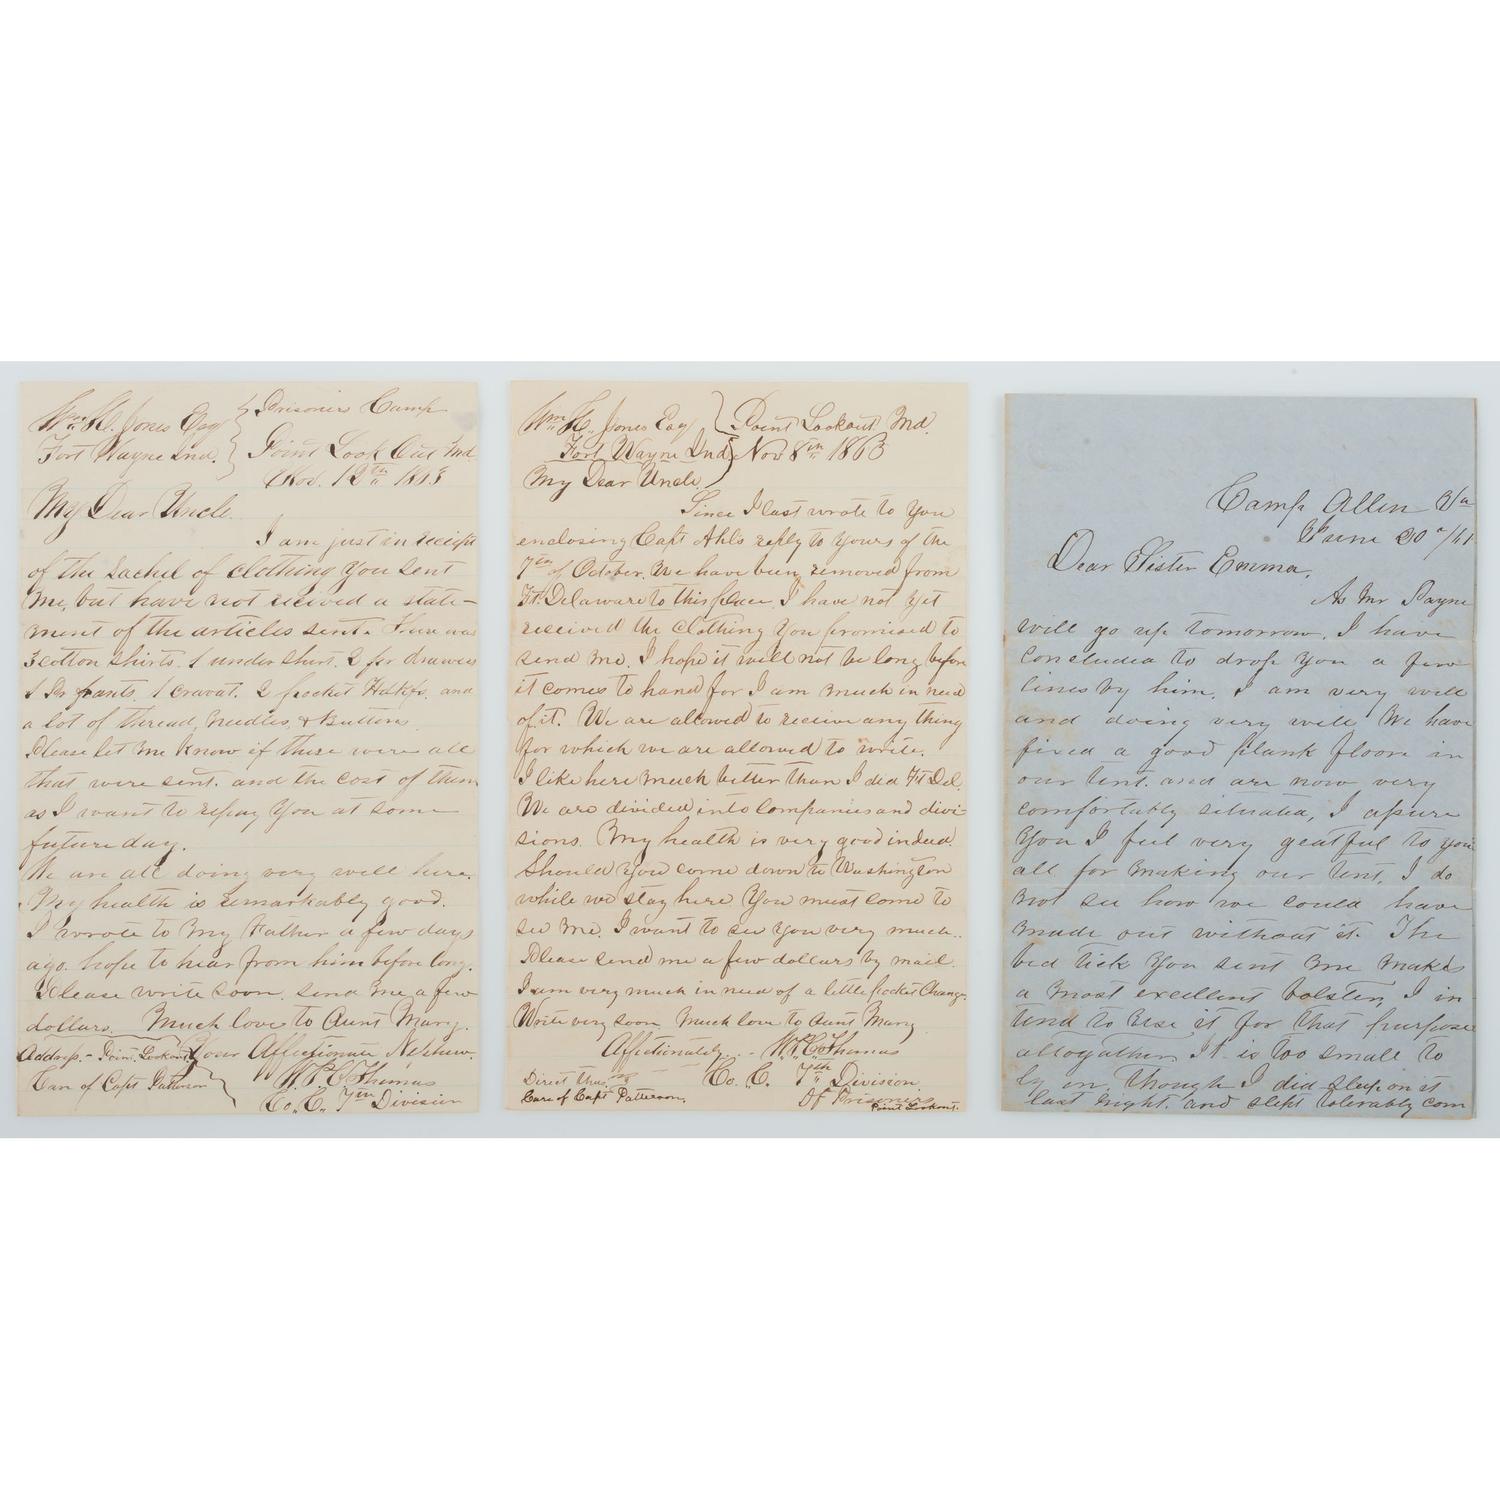 Wm H. Jones Esq
Fort Wayne Ind.
Prisoners Camp
Point Look Out Md
Nov. 12th 1863
My Dear Uncle.
I am just in receipt
of the Sachel of clothing you sent
me, but have not recieved a state-
ment of the articles sent. There was
3 cotton shirts. 1 under shirt. 2 pr drawers
1 Pr pants. 1 cravat. 2 pocket Hdkfs. and
a lot of thread, needles, & buttons.
Please let me know if these were all
that were sent. and the cost of them
as I want to repay you at some
future day.
We are all doing very well here.
My health is remarkably good.
I wrote to my Father a few days
ago. hope to hear from him before long.
Please write soon. send me a few
dollars. Much love to Aunt Mary.
Address - Point Lookout Your Affectionate Nephew.
Care of Capt Patterson W. P. C. Thomas
Co. C. 7th Division
Wm H. Jones Esq
Fort Wayne Ind
Point Lookout Md.
Nov 8th 1863
My Dear Uncle.
Since I last wrote to you
enclosing Capt Ahls reply to yours of the
7th of October. We have been removed from
Ft. Delaware to this place. I have not yet
received the clothing you promised to
send me. I hope it will not be long before
it comes to hand for I am much in need
of it. We are allowed to receive any thing
for which we are allowed to write.
I like here much better than I did Ft Del.
We are divided into Companies and divi-
sions. My health is very good indeed.
Should you come down to Washington
while we stay here you must come to
see me. I want to see you very much..
Please send me a few dollars by mail.
I am very much in need of a little pocket Change.
Write very soon. Much love to Aunt Mary
Affectionately - W. P. C. Thomas
Direct thus Co. C. 7th Division
Care of Capt Patterson, Of Prisoners
Point Lookout.
Camp Allen Va
June 20th/61
Dear Sister Emma,
As Mr Payne
will go up tomorrow, I have
concluded to drop you a few
lines by him. I am very well
and doing very well We have
fixed a good plank floor in
our tent. and are now very
comfortably situated, I assure
you I feel very greatful to you
all for making our tent, I do
not see how we could have
made out without it. The
bed tick you sent me makes
a most excellent bolster, I in-
tend to use it for that purpose
altogather. It is too small to
ly on, though I did sleep on it
last night. and slept tolerably com